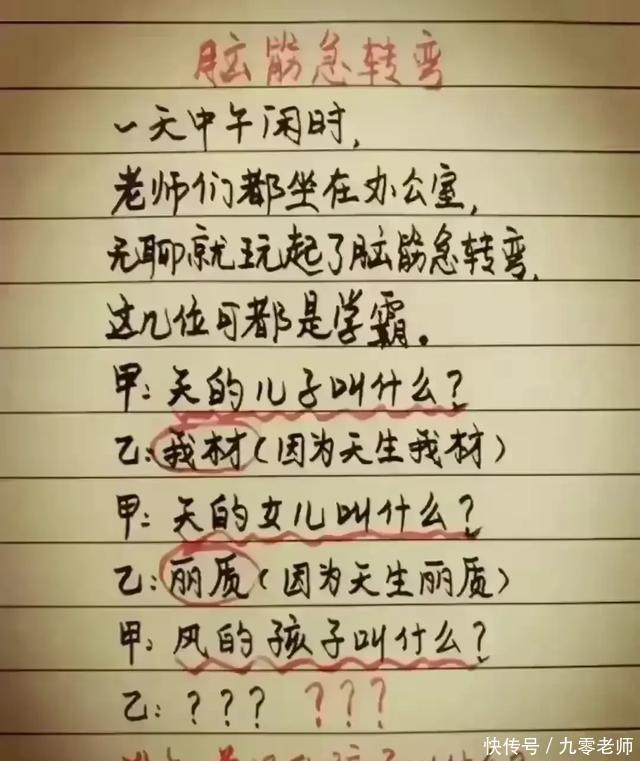 脑筋急转弯
一天中午闲时,
老师们都坐在办公室,
无聊就玩起了脑筋急转弯,
这几位可都是学霸。
甲:天的儿子叫什么?
乙:我材(因为天生我材)
甲:天的女儿叫什么?
乙:丽质(因为天生丽质)
甲:风的孩子叫什么?
乙:??? ???
快传号/九零老师